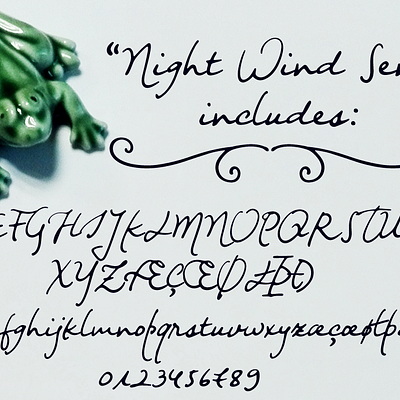 “Night Wind Sen
includes:
EFGHIJKLMNOPQRSTU
XYZÆÇŒØŁÞÐ
fghijklmnopqrstuvwxyzæçœøłþ
0123456789